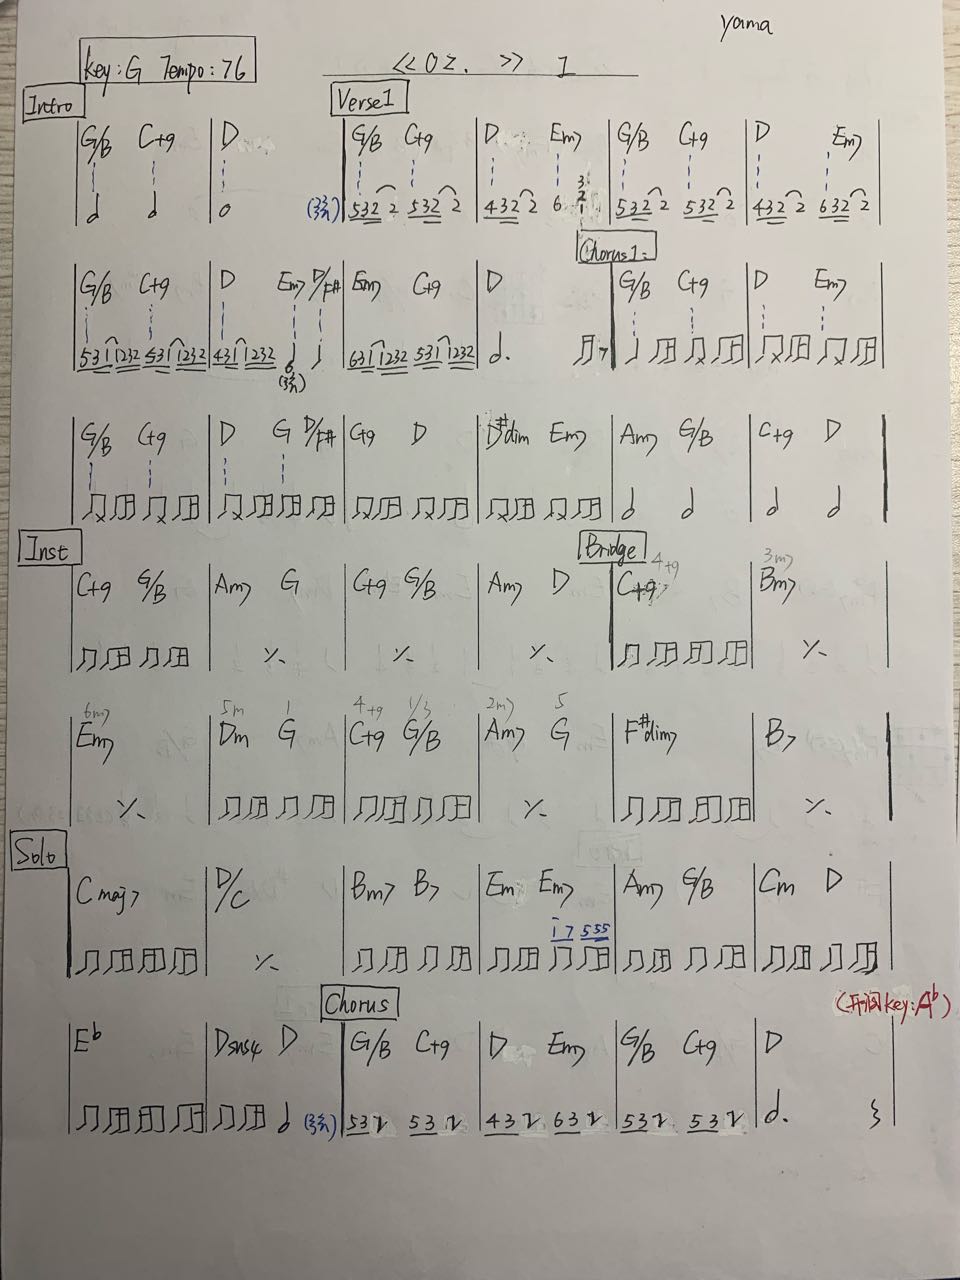 yama
Key: G Tempo: 76
《OZ.》 1
Intro Verse1
G/B C+9 D G/B C+9 D Em7 G/B C+9 D Em7
532 2 532 2 432 2 6 3 2 1 532 2 532 2 432 2 632 2
Chorus1:
G/B C+9 D Em7 D/F# Em7 C+9 D G/B C+9 D Em7
531 1232 531 1232 431 1232 6 631 1232 531 1232
G/B C+9 D G D/F# C+9 D D#dim Em7 Am7 G/B C+9 D
Inst Bridge
4+9 3m7
C+9 G/B Am7 G C+9 G/B Am7 D C+9 Bm7
6m7 5m 1 4+9 1/3 2m7 5
Em7 Dm G C+9 G/B Am7 G F#dim7 B7
Solo
Cmaj7 D/C Bm7 B7 Em Em7 Am7 G/B Cm D
1 7 555
Chorus (升调key:Ab)
Eb Dsus4 D G/B C+9 D Em7 G/B C+9 D
532 532 432 632 532 532